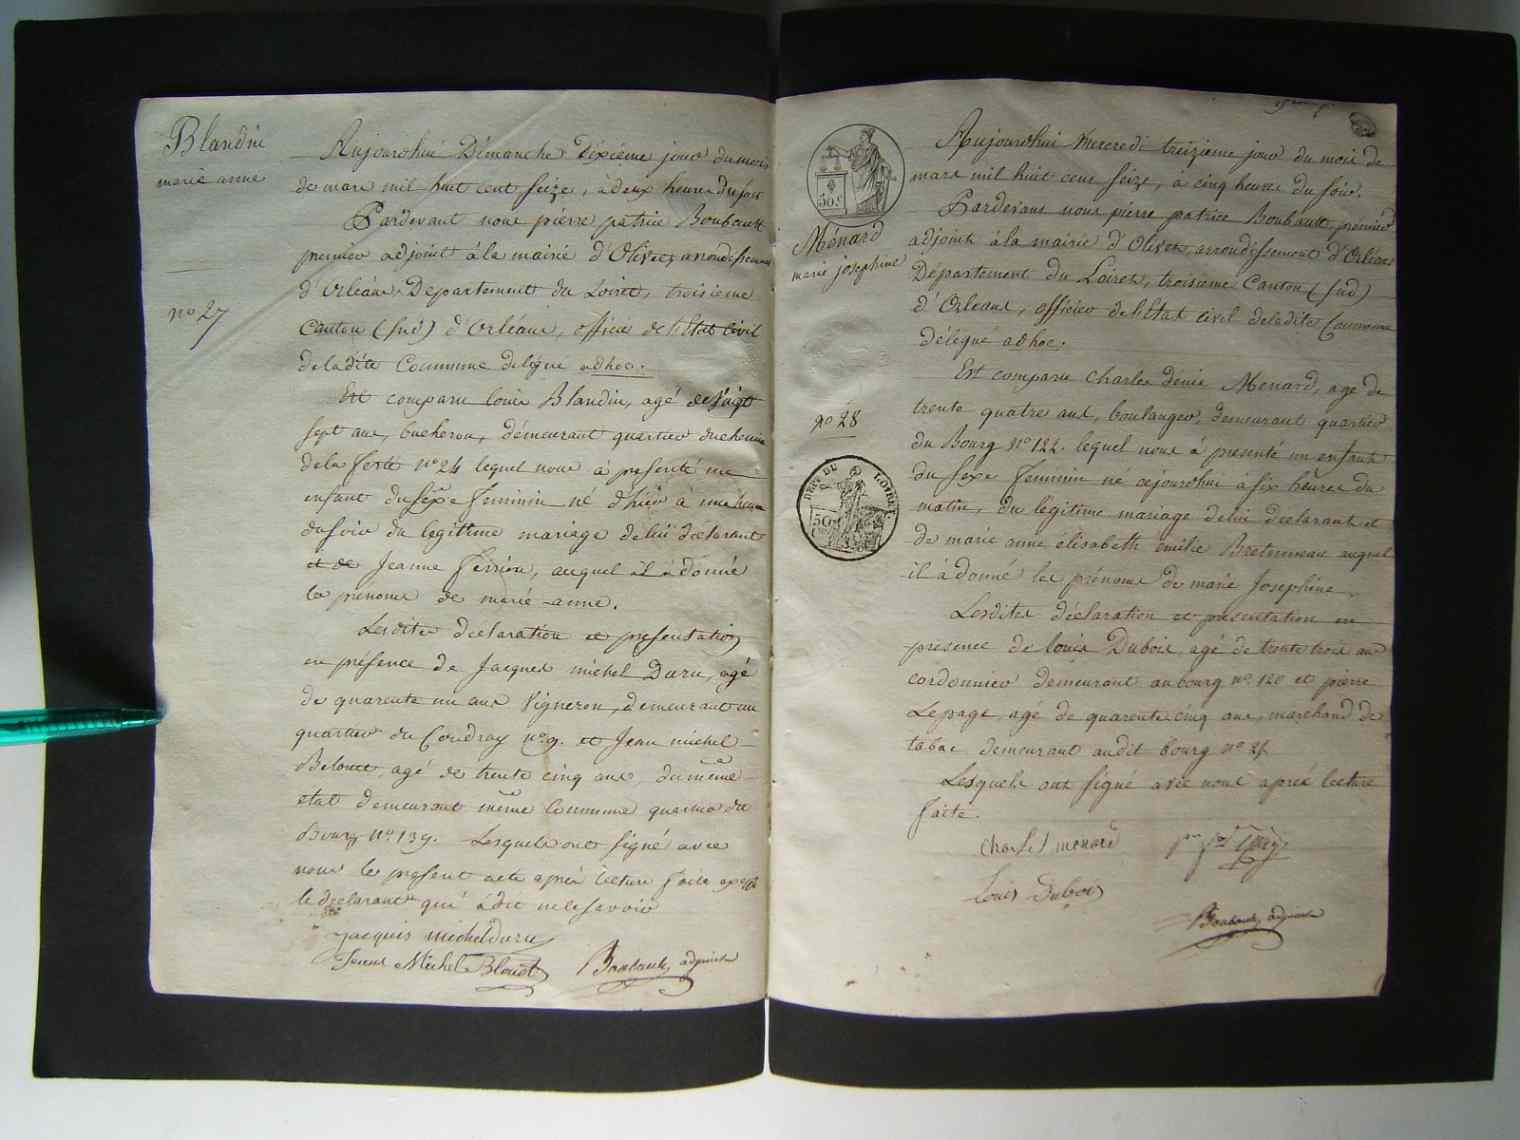 Blandin
marie anne
no 27
Aujourdhui Dimanche dixième jour du mois
de mars mil huit cent seize, à deux heures du soir
Pardevant nous pierre patrice Boubault
premier adjoint à la mairie d'Olivet, arrondissement
d'Orléans, Département du Loiret, troisième
Canton (sud) d'Orléans, officier de l'Etat Civil
de ladite Commune délégué adhoc.
Est comparu louis Blandin, agé de vingt
sept ans, bucheron, demeurant quartier du chemin
de la ferté no 24 lequel nous à présenté un
enfant du sexe feminin né d'hier à une heure
du soir du legitime mariage de lui déclarant
et de Jeanne auquel il à donné
les prénoms de marie-anne.
Lesdites déclaration et présentation
en présence de Jacques michel Daru, agé
de quarente un ans Vigneron, demeurant au
quartier du Coudray no 9. et Jean michel
agé de trente cinq ans du même
etat demeurant même Commune quartier du
Bourg No 139. Lesquels ont signé avec
nous le présent acte après lecture faite excepté
le déclarant qui à dit ne le savoir
jacquis micheldaru
Michel Blouet Boubault, adjoint
50c
Ménard
marie josephine
no 28
DEPT DU LOIRET
50c
Aujourdhui Mercredi treizieme jour du mois de
mars mil huit cent seize, à cinq heures du soir.
Pardevant nous pierre patrice Boubault, premier
adjoint à la mairie d'Olivet, arrondissement d'Orléans
Département du Loiret, troisieme Canton (sud)
d'Orléans, officier de l'Etat Civil de ladite Commune
délégué adhoc.
Est comparu charles denis Menard, agé de
trente quatre ans, boulanger, demeurant quartier
du Bourg No 122. lequel nous à présenté un enfant
du sexe feminin né aujourdhui à six heures du
matin, du légitime mariage de lui declarant et
de marie anne élisabeth emélie Bretonneau auquel
il à donné les prénoms de marie Josephine.
Lesdites déclaration et présentation en
présence de louis Dubois, agé de trente trois ans
cordonnier demeurant au bourg no 120 et pierre
Lepage, agé de quarente cinq ans, marchand de
tabac demeurant audit bourg no
Lesquels ont signé avec nous après lecture
faite.
Charles menard
Louis Dubois
Boubault, adjoint